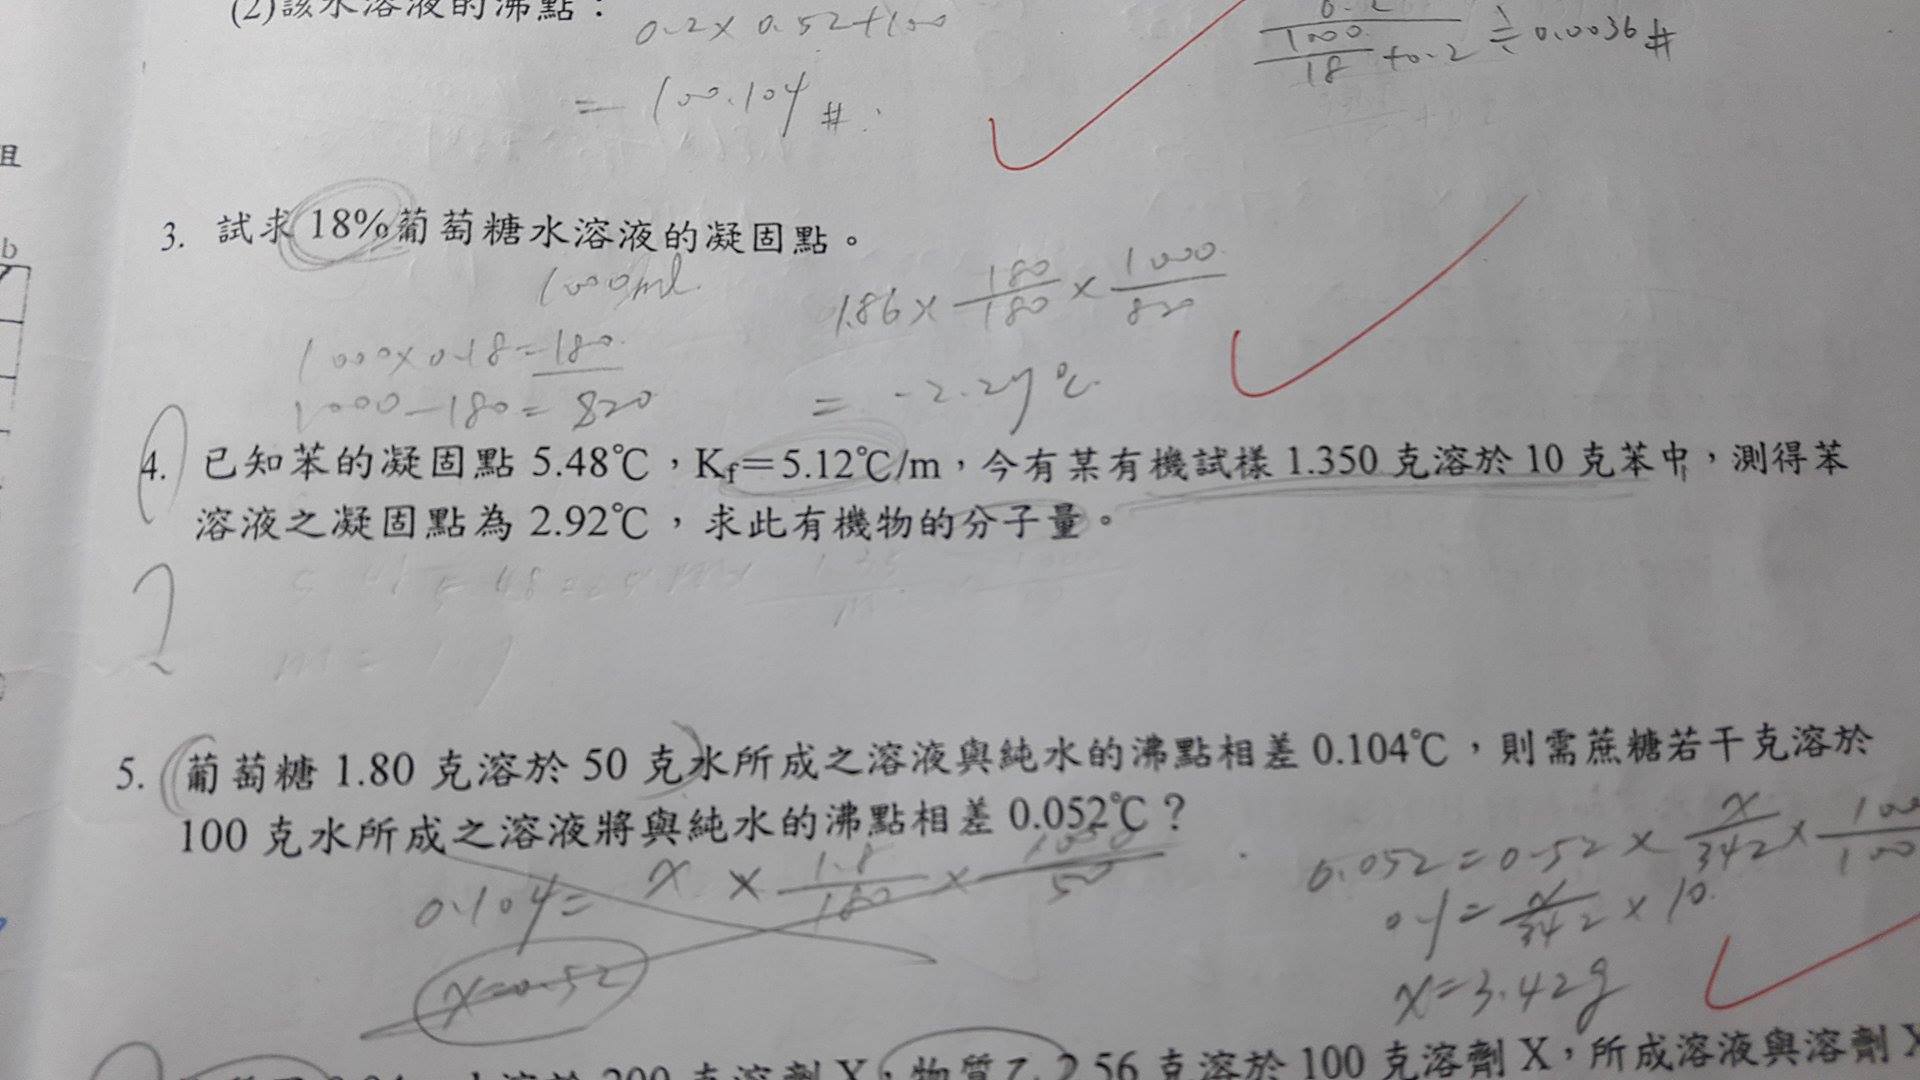 (2)該水溶液的沸點：
0.2×0.52+100
=100.104#
0.2
1000
18 +0.2 ≒0.0036#
3. 試求18%葡萄糖水溶液的凝固點。
1000ml
1000×0.18=180
1000-180=820
1.86×180/180×1000/820
=-2.27℃
4. 已知苯的凝固點 5.48℃，Kf＝5.12℃/m，今有某有機試樣 1.350 克溶於 10 克苯中，測得苯
溶液之凝固點為 2.92℃，求此有機物的分子量。
?
5. 葡萄糖 1.80 克溶於 50 克水所成之溶液與純水的沸點相差 0.104℃，則需蔗糖若干克溶於
100 克水所成之溶液將與純水的沸點相差 0.052℃？
0.104=x×1.8/180×1000/50
x=0.52
0.052=0.52×x/342×1000/100
0.1=x/342×10
x=3.42g
200 克溶劑 X，物質乙 2.56 克溶於 100 克溶劑 X，所成溶液與溶劑 X